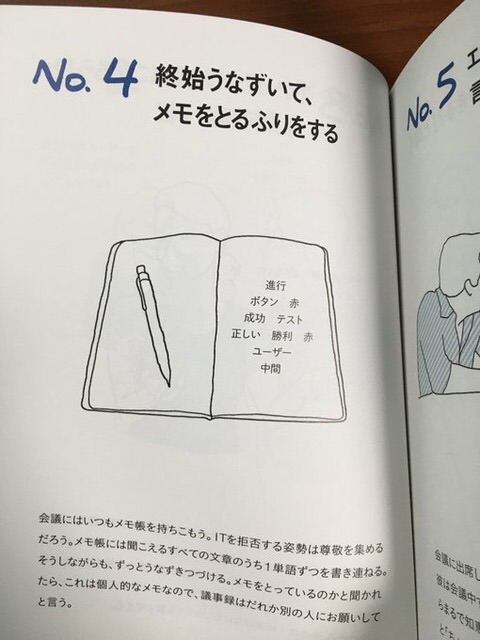 No. 4 終始うなずいて、
メモをとるふりをする
進行
ボタン 赤
成功 テスト
正しい 勝利 赤
ユーザー
中間
会議にはいつもメモ帳を持ちこもう。ITを拒否する姿勢は尊敬を集める
だろう。メモ帳には聞こえるすべての文章のうち1単語ずつを書き連ねる。
そうしながらも、ずっとうなずきつづける。メモをとっているのかと聞かれ
たら、これは個人的なメモなので、議事録はだれか別の人にお願いして
と言う。
No. 5 エ
言
会議に出席し
彼は会議中で
らまるで知恵
と「あ